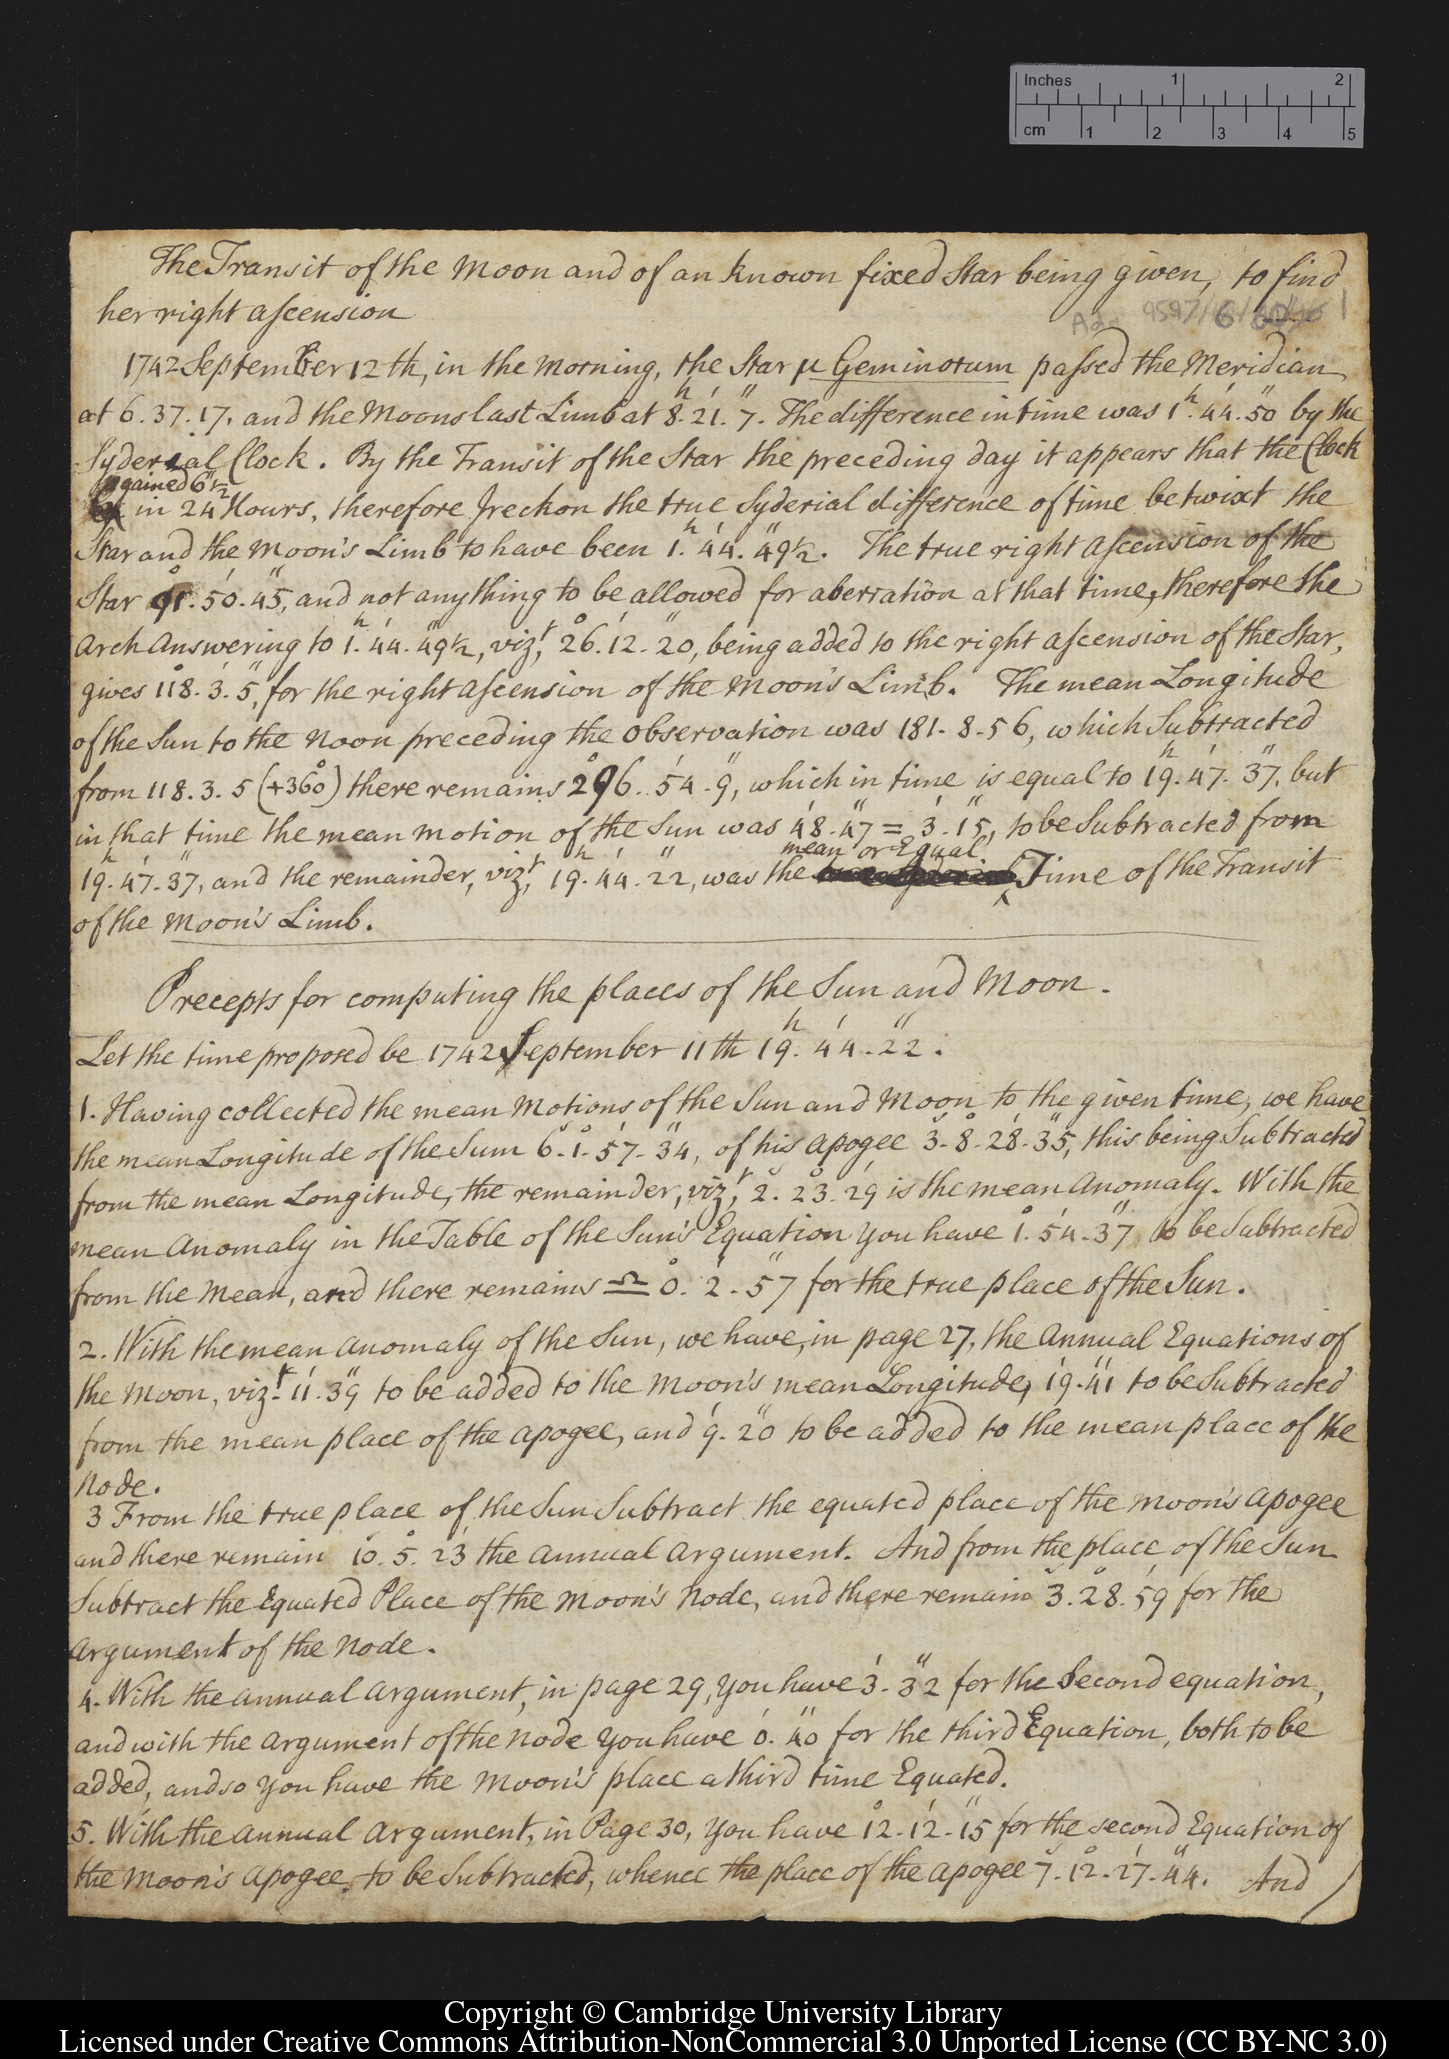 Inches 1 2
cm 1 2 3 4 5
The Transit of the Moon and of an known fixed Star being given, to find
her right ascension
1742 September 12th, in the morning, the Star μ Geminorum passed the Meridian
at 6. 37. 17, and the Moons last Limb at 8h. 21'. 7". The difference in time was 1h. 44'. 50" by the
Syderial Clock. By the Transit of the Star the preceding day it appears that the Clock
gained 6"½
in 24 Hours, therefore I reckon the true Syderial difference of time betwixt the
Star and the Moon's Limb to have been 1h. 44'. 49"½. The true right ascension of the
Star 91°. 50'. 45", and not anything to be allowed for aberration at that time, therefore the
Arch answering to 1h. 44'. 49"½, vizt, 26°. 12'. 20", being added to the right ascension of the Star,
gives 118°. 3'. 5", for the right ascension of the Moon's Limb. The mean Longitude
of the Sun to the noon preceding the observation was 181. 8. 56, which Subtracted
from 118. 3. 5 (+360°) there remains 296°. 54'. 9", which in time is equal to 19h. 47'. 37", but
in that time the mean motion of the Sun was 48'. 47" = 3'. 15", to be Subtracted from
mean or Equal
19h. 47'. 37", and the remainder, vizt, 19h. 44'. 22", was the Time of the Transit
of the Moon's Limb.
Precepts for computing the places of the Sun and Moon.
Let the time proposed be 1742 September 11th 19h. 44'. 22".
1. Having collected the mean Motions of the Sun and Moon to the given time, we have
the mean Longitude of the Sum 6s. 1°. 57'. 34", of his Apogee 3s. 8°. 28'. 35", this being Subtracted
from the mean Longitude, the remainder, vizt, 2s. 23°. 29' is the mean Anomaly. With the
mean Anomaly in the Table of the Sun's Equation you have 1°. 54'. 37" to be Subtracted
from the Mean, and there remains ♎ 0°. 2'. 57" for the true place of the Sun.
2. With the mean Anomaly of the Sun, we have, in page 27, the Annual Equations of
the Moon, vizt. 11'. 39" to be added to the Moon's mean Longitude, 19'. 41" to be Subtracted
from the mean place of the Apogee, and 9'. 20" to be added to the mean place of the
Node.
3 From the true place of the Sun Subtract the equated place of the Moon's Apogee
and there remain 10s. 5°. 23' the Annual Argument. And from the place of the Sun
Subtract the Equated Place of the Moon's Node, and there remain 3s. 28°. 59' for the
Argument of the Node.
4. With the Annual Argument, in page 29, you have 3'. 32" for the Second equation,
and with the Argument of the Node you have 0'. 40" for the third Equation, both to be
added, and so you have the Moon's place a third time Equated.
5. With the Annual Argument, in Page 30, you have 12°. 12'. 15" for the second Equation of
the Moon's Apogee, to be Subtracted, whence the place of the Apogee 7s. 12°. 27'. 44". And
Copyright © Cambridge University Library
Licensed under Creative Commons Attribution-NonCommercial 3.0 Unported License (CC BY-NC 3.0)